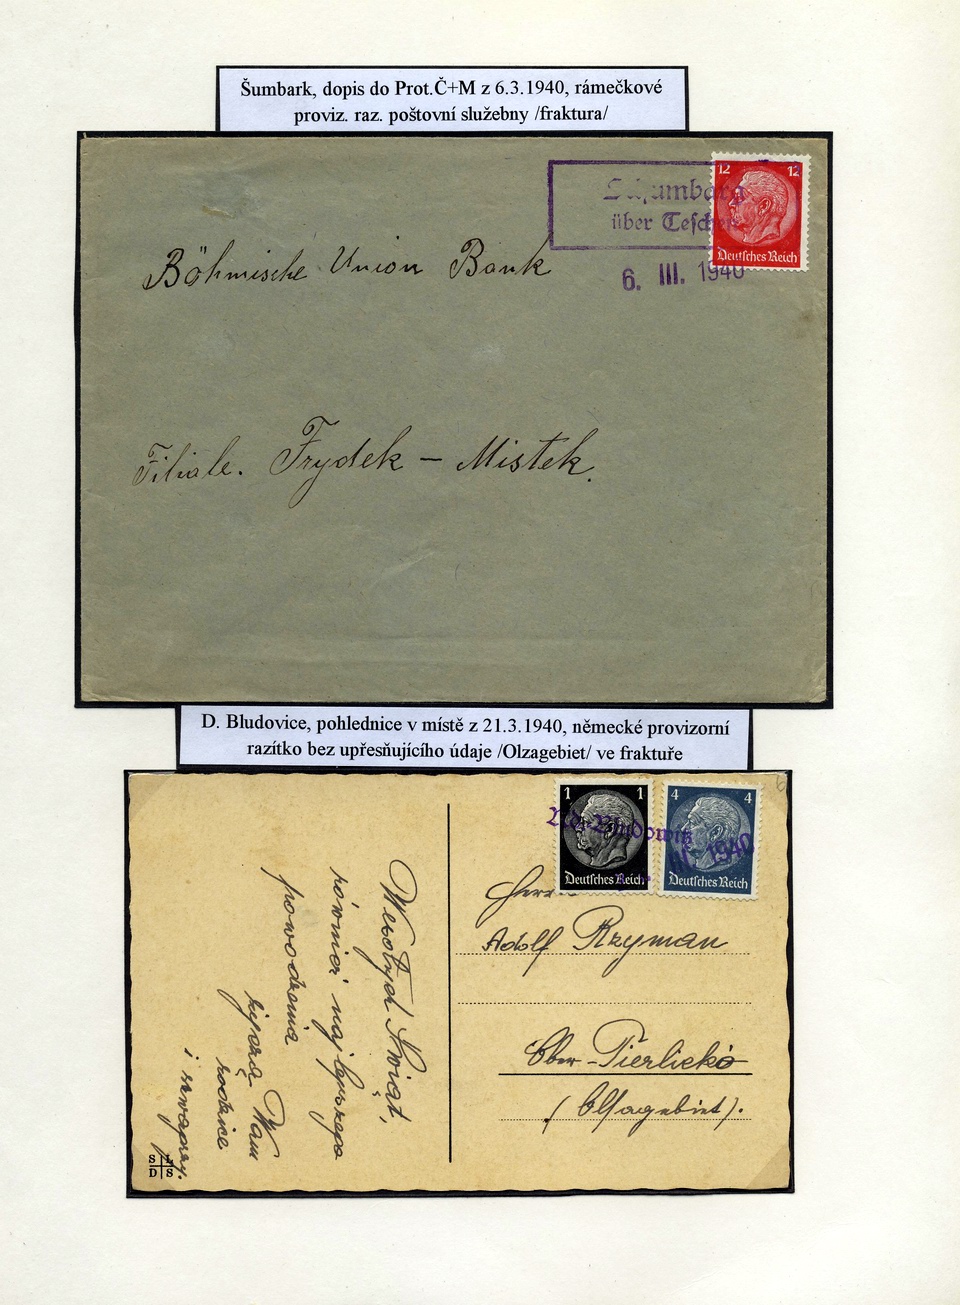 Šumbark, dopis do Prot.Č+M z 6.3.1940, rámečkové
proviz. raz. poštovní služebny /fraktura/
12 12
Schumbarg
über Teschen
Deutsches Reich
6. III. 1940
Böhmische Union Bank
Filiale. Frydek – Mistek.
D. Bludovice, pohlednice v místě z 21.3.1940, německé provizorní
razítko bez upřesňujícího údaje /Olzagebiet/ ve fraktuře
1 1
4 4
Nd. Bludowitz
III. 1940
Deutsches Reich
Deutsches Reich
Herrn
Adolf Rzyman
Ober-Tierlicko
(Olsagebiet).
Wesołych Świąt,
również najlepszego
powodzenia
życzą Wam
rodzice
i
S L
D S